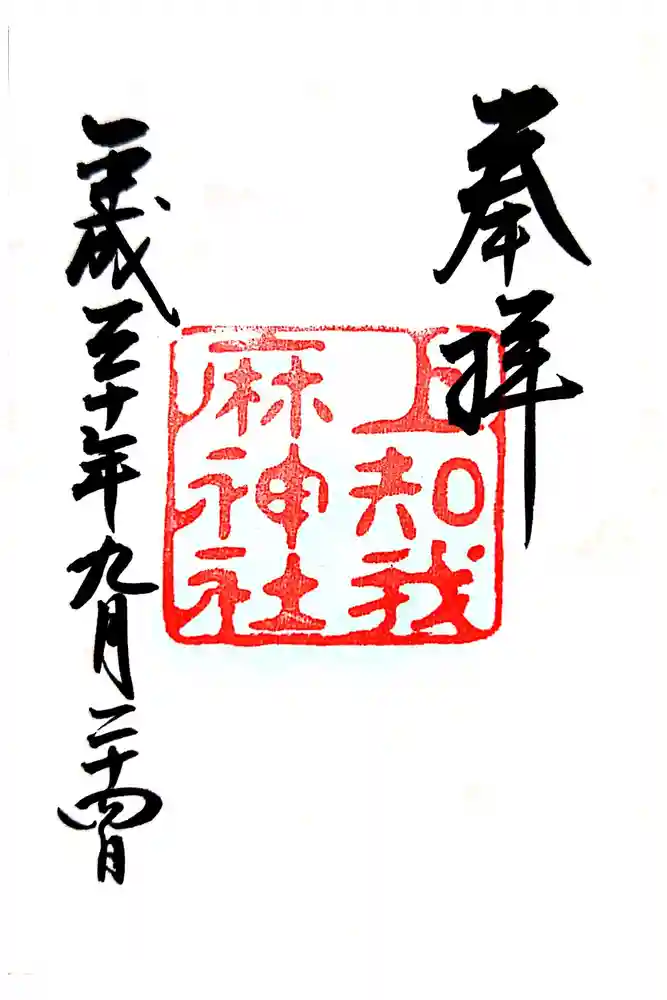 奉拝
上知我
麻神社
平成三十年九月二十四日